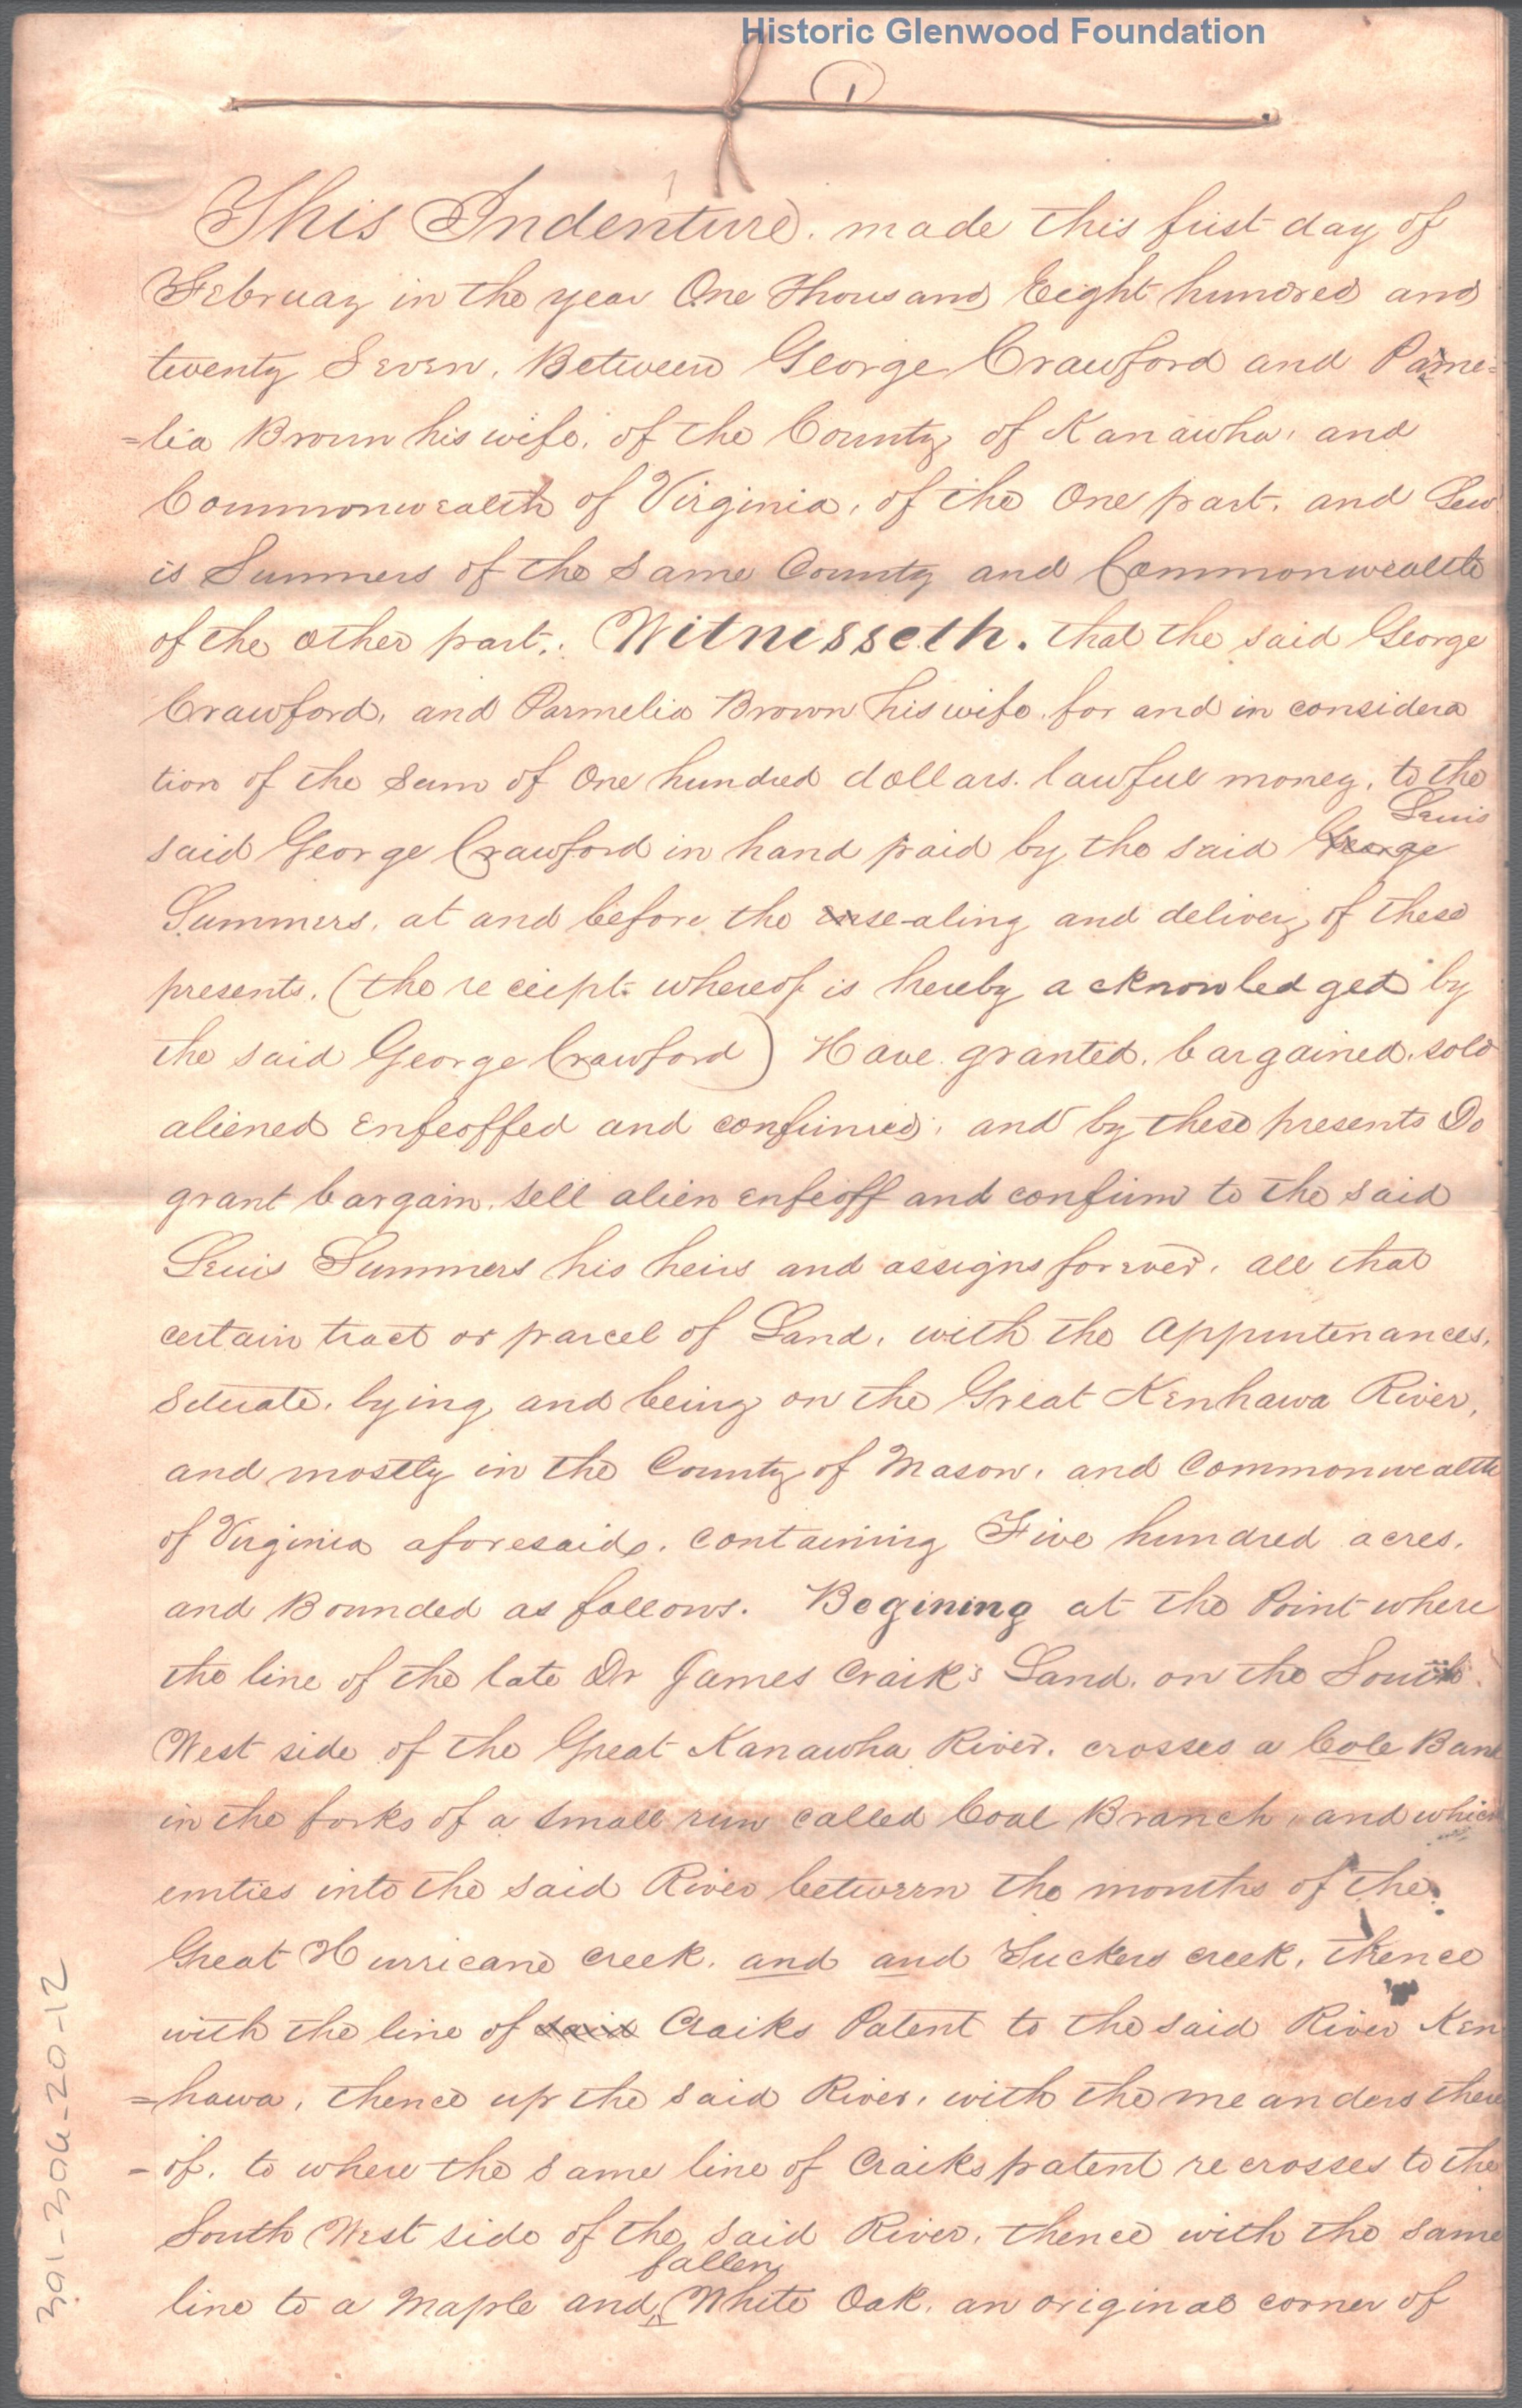 Historic Glenwood Foundation
1
This Indenture. made this first day of
February in the year One Thousand Eight hundred and
twenty Seven. Between George Crawford and Parme=
=lia Brown his wife, of the County of Kanawha, and
Commonwealth of Virginia, of the One part. and Lew
is Summers of the same County and Commonwealth
of the other part. Witnesseth. that the said George
Crawford, and Parmelia Brown his wife, for and in considera
tion of the Sum of One hundred dollars. lawful money, to the
said George Crawford in hand paid by the said George Lewis
Summers, at and before the ensealing and delivery of these
presents, (the receipt whereof is hereby acknowledged by
the said George Crawford) Have granted, bargained, sold
aliened enfeoffed and confirmed, and by these presents Do
grant bargain, sell alien enfeoff and confirm to the said
Lewis Summers his heirs and assigns forever, all that
certain tract or parcel of Land, with the appurtenances,
Situate, lying and being on the Great Kenhawa River,
and mostly in the County of Mason, and Commonwealth
of Virginia aforesaid, containing Five hundred acres,
and Bounded as follows. Begining at the Point where
the line of the late Dr James Craik's Land, on the South
West side of the Great Kanawha River, crosses a Cole Bank
in the forks of a small run called Coal Branch, and which
emties into the said River between the mouths of the
Great Hurricane creek, and and Tuckers creek, thence
with the line of said Craiks Patent to the said River Ken
=hawa, thence up the said River, with the meanders there
-of, to where the same line of Craiks patent recrosses to the
South West side of the said River, thence with the same
line to a Maple and fallen White Oak, an original corner of
301-306-20-12